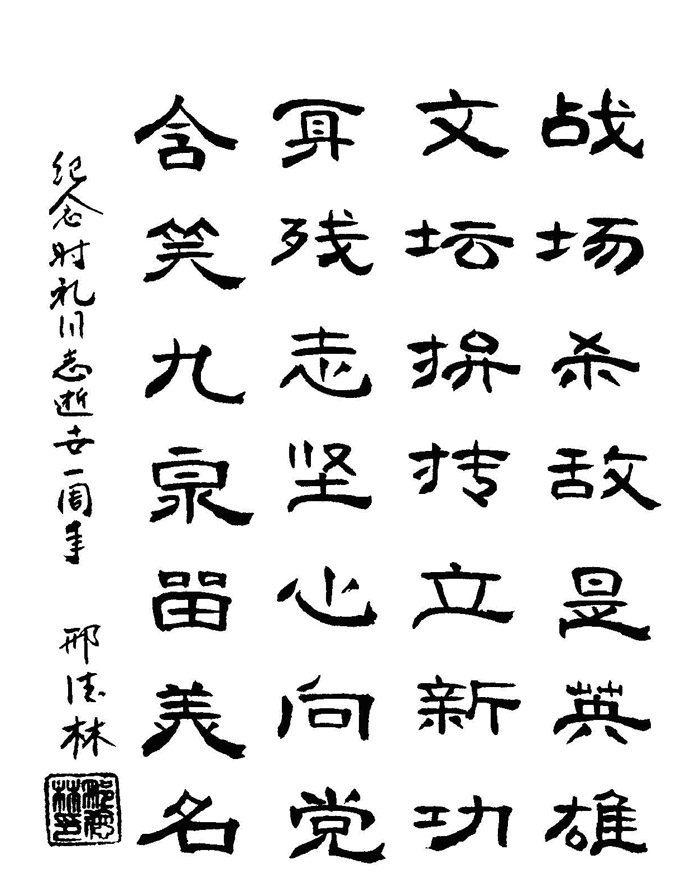 战场杀敌是英雄
文坛拼抟立新功
身残志坚心向党
含笑九泉留美名
纪念时礼同志逝世一周年
邢德林
邢德林印